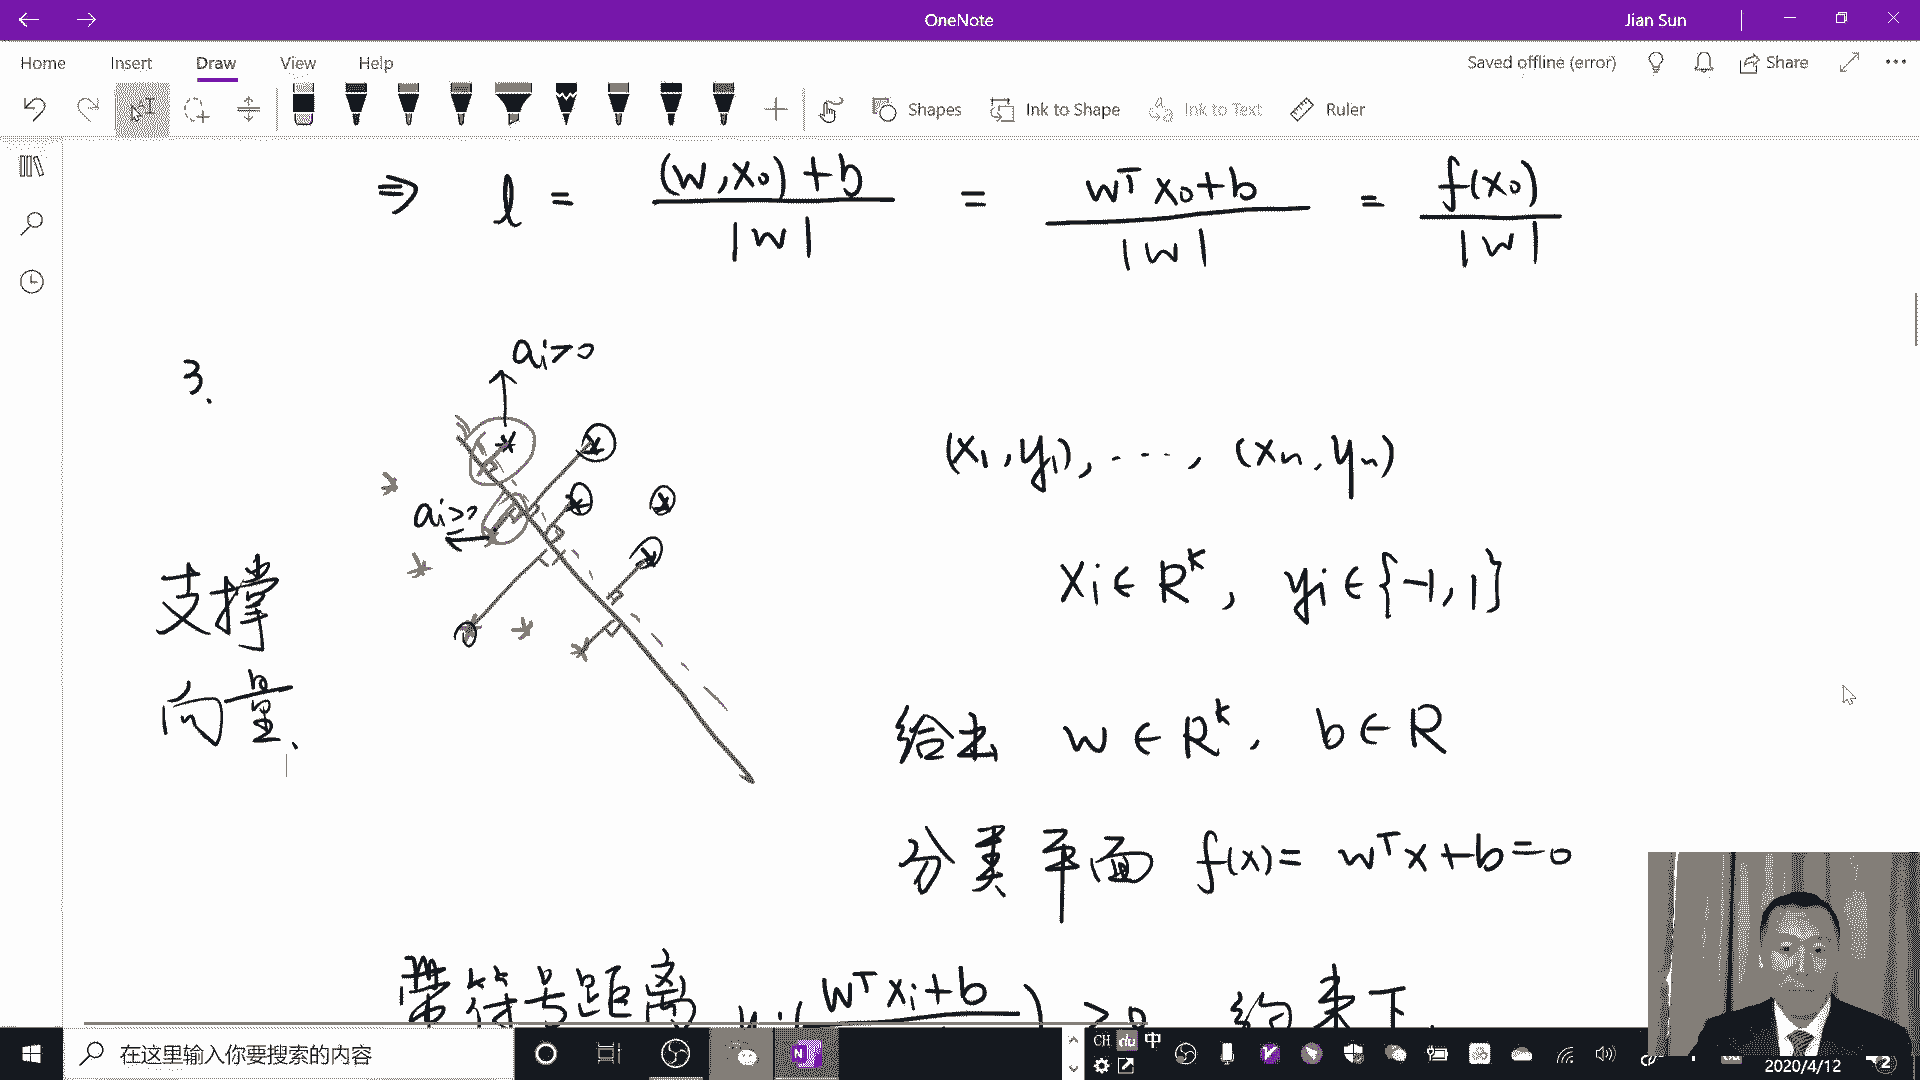 OneNote
Jian Sun
Home Insert Draw View Help
Saved offline (error)
Share
Shapes Ink to Shape Ink to Text Ruler
⇒ l = (w,x₀)+b / |w| = wᵀx₀+b / |w| = f(x₀) / |w|
3.
aᵢ>0
aᵢ>0
支撑
向量、
(x₁,y₁), ···, (xₙ,yₙ)
xᵢ∈Rᵏ, yᵢ∈{-1,1}
给出 w∈Rᵏ, b∈R
分类平面 f(x)= wᵀx+b=0
带符号距离 yᵢ(wᵀxᵢ+b / ) >0 约束下
在这里输入你要搜索的内容
CH du 中
2020/4/12
2